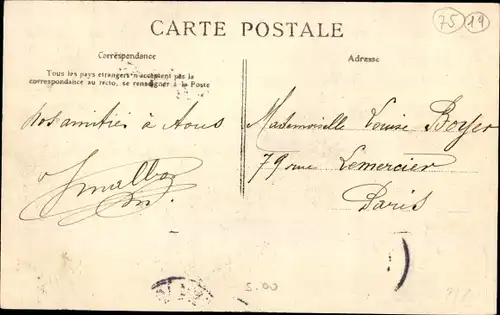 CARTE POSTALE
75 19
Correspondance
Adresse
Tous les pays étrangers n'acceptent pas la
correspondance au recto, se renseigner à la Poste
nos amitiés à tous
Mademoiselle Louise Boyer
79 rue Lemercier
Paris
5.00